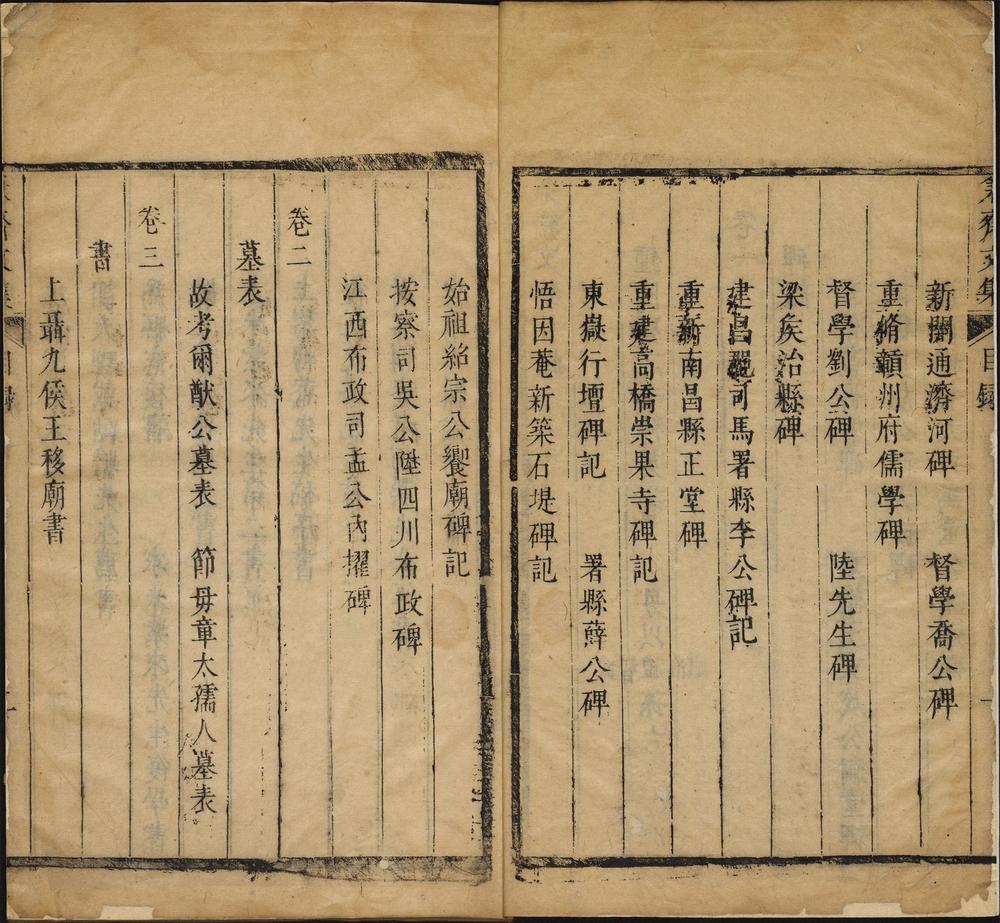 齋文集 目録
新開通濟河碑 督學喬公碑
重脩贛州府儒學碑
督學劉公碑 陸先生碑
梁矦治縣碑
建昌司馬署縣李公碑記
重新南昌縣正堂碑
重建高橋崇果寺碑記
東嶽行壇碑記 署縣薛公碑
悟因菴新築石堤碑記
始祖紹宗公饗廟碑記
按察司吳公陞四川布政碑
江西布政司孟公內擢碑
卷二
墓表
故考爾猷公墓表 節毋章太孺人墓表
卷三
書
上聶九侯王移廟書